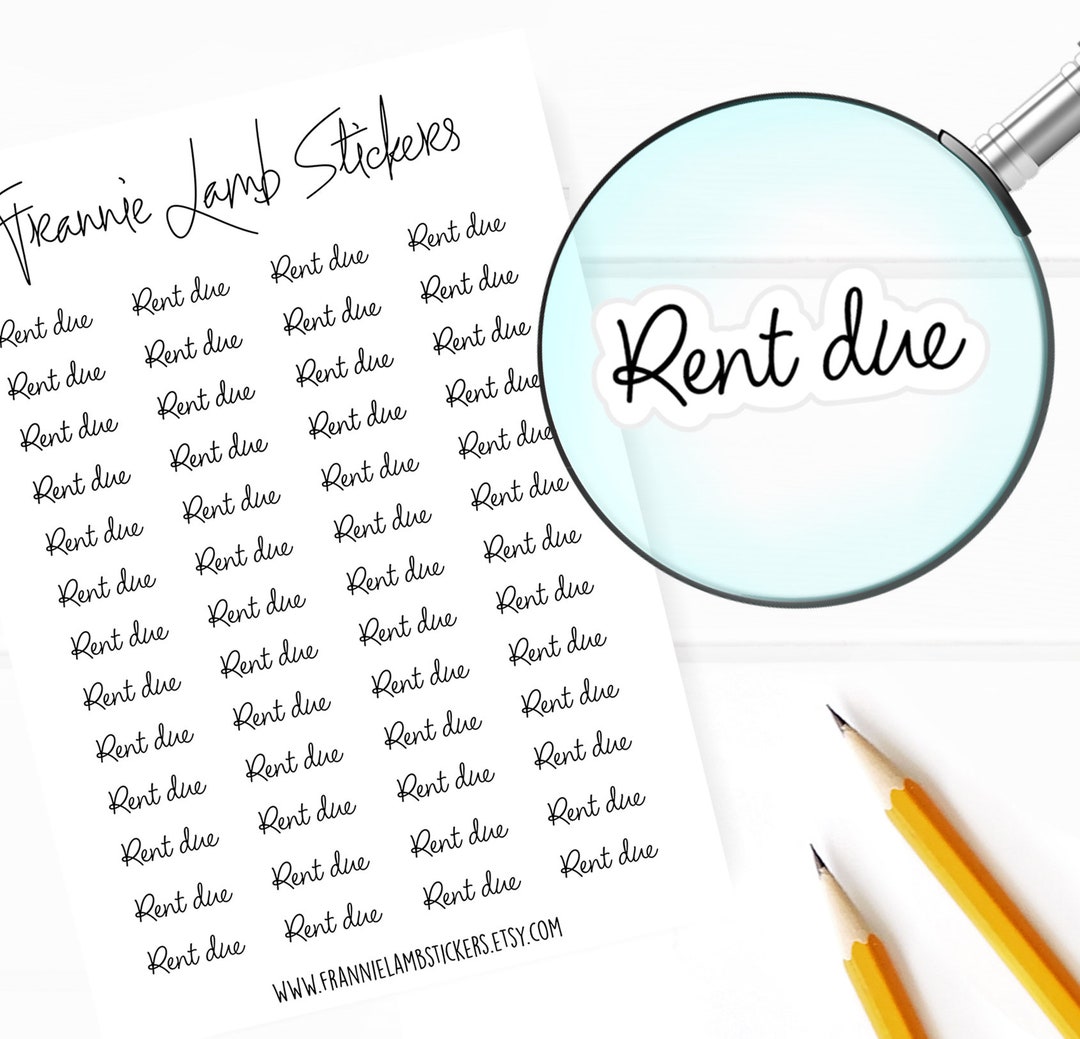 Frannie Lamb Stickers
Rent due Rent due Rent due Rent due
Rent due Rent due Rent due Rent due
Rent due Rent due Rent due Rent due
Rent due Rent due Rent due Rent due
Rent due Rent due Rent due Rent due
Rent due Rent due Rent due Rent due
Rent due Rent due Rent due Rent due
Rent due Rent due Rent due Rent due
Rent due Rent due Rent due Rent due
Rent due Rent due Rent due Rent due
Rent due Rent due Rent due Rent due
Rent due Rent due Rent due Rent due
Rent due Rent due Rent due Rent due
WWW.FRANNIELAMBSTICKERS.ETSY.COM
Rent due